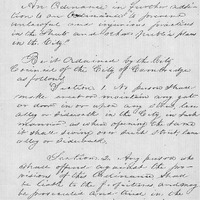 An Ordinance in further addi-
tion to an Ordinance to prevent
unlawful and injurious practices
in the Streets and other public places
in the City.
Be it Ordained by the City
Council of the City of Cambridge
as follows,
Section 1. No person shall
make use or maintain any gate
or door in or upon any street, lane
alley or sidewalk in the City, in such
manner as when opening the same
it shall swing over such street, lane,
alley or sidewalk.
Section 2. Any person who
shall offend against the pro-
visions of this Ordinance shall
be liable to the penalties and may
be prosecuted and tried in the